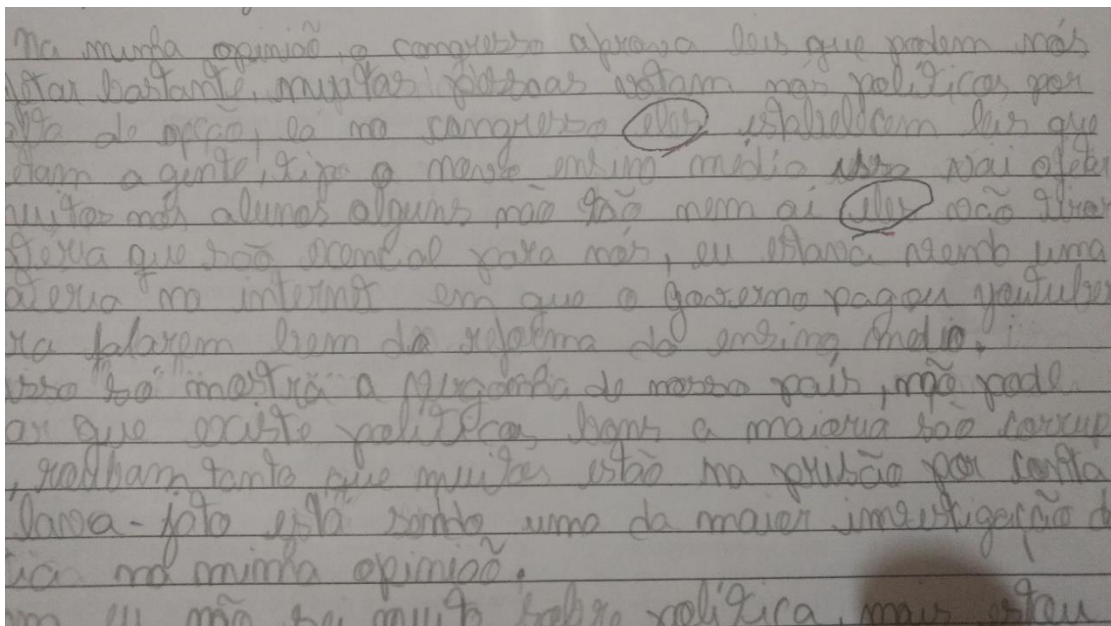 Na minha opinião o congresso aprova leis que podem nós
fetar bastante, muitas pessoas votam nos políticos por
alta de opção, la no congresso eles estabelecem leis que
etam a gente, tipo o menos ensino médio isso vai afetar
uitos nós alunos alguns não tão nem ai eles vão tirar
teria que são para nós, eu estava vendo uma
ateria na internet em que o governo pagou youtuber
ra falarem bem da reforma do ensino médio.
isso só mostra a vergonha de nosso país, não pode
ar que existe políticos bons a maioria são corrup
, roubam tanto que muitos estão na prisão por conta
lava-jato está sendo uma da maior investigação d
ica na minha opinião.
m eu não sei muito sobre política, mais estou